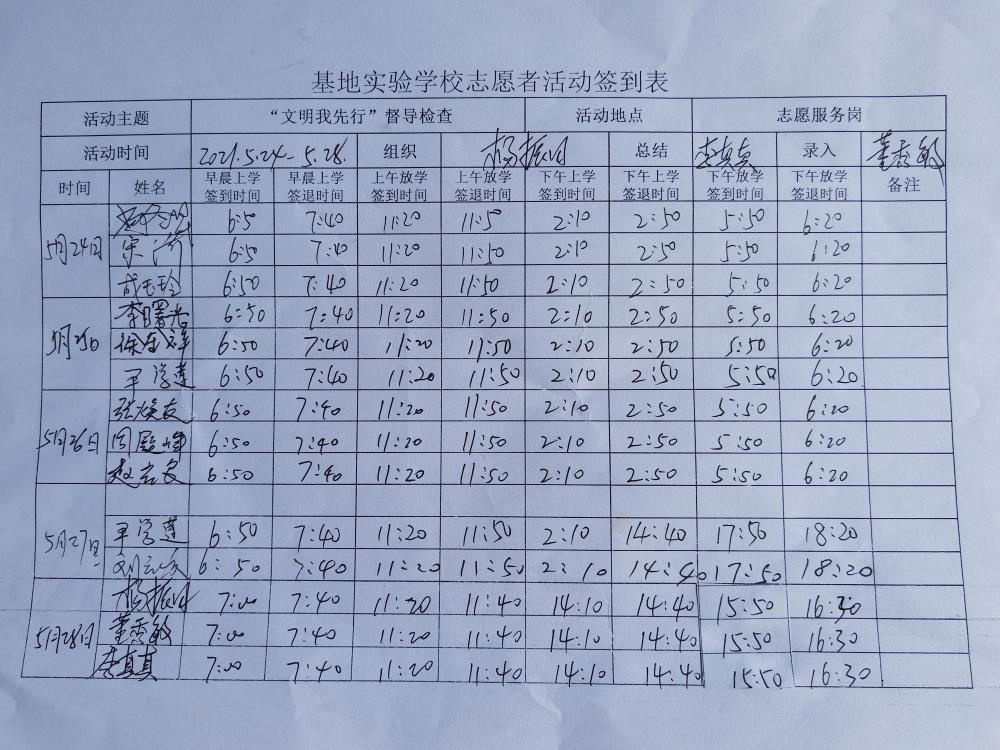 基地实验学校志愿者活动签到表
活动主题 “文明我先行”督导检查 活动地点 志愿服务岗
活动时间 2021.5.24-5.28. 组织 杨振田 总结 李真真 录入 董秀敏
时间 姓名 早晨上学签到时间 早晨上学签退时间 上午放学签到时间 上午放学签退时间 下午上学签到时间 下午上学签退时间 下午放学签到时间 下午放学签退时间 备注
5月24日 6:5 7:40 11:20 11:50 2:10 2:50 5:50 6:20
宋 6:50 7:40 11:20 11:50 2:10 2:50 5:50 6:20
成玉玲 6:50 7:40 11:20 11:50 2:10 2:50 5:50 6:20
5月25日 李曙光 6:50 7:40 11:20 11:50 2:10 2:50 5:50 6:20
6:50 7:40 11:20 11:50 2:10 2:50 5:50 6:20
王学莲 6:50 7:40 11:20 11:50 2:10 2:50 5:50 6:20
5月26日 张焕友 6:50 7:40 11:20 11:50 2:10 2:50 5:50 6:20
周殿峰 6:50 7:40 11:20 11:50 2:10 2:50 5:50 6:20
6:50 7:40 11:20 11:50 2:10 2:50 5:50 6:20
5月27日 王学莲 6:50 7:40 11:20 11:50 2:10 14:40 17:50 18:20
6:50 7:40 11:20 11:50 2:10 14:40 17:50 18:20
5月28日 杨振田 7:00 7:40 11:20 11:40 14:10 14:40 15:50 16:30
董秀敏 7:00 7:40 11:20 11:40 14:10 14:40 15:50 16:30
李真真 7:00 7:40 11:20 11:40 14:10 14:40 15:50 16:30